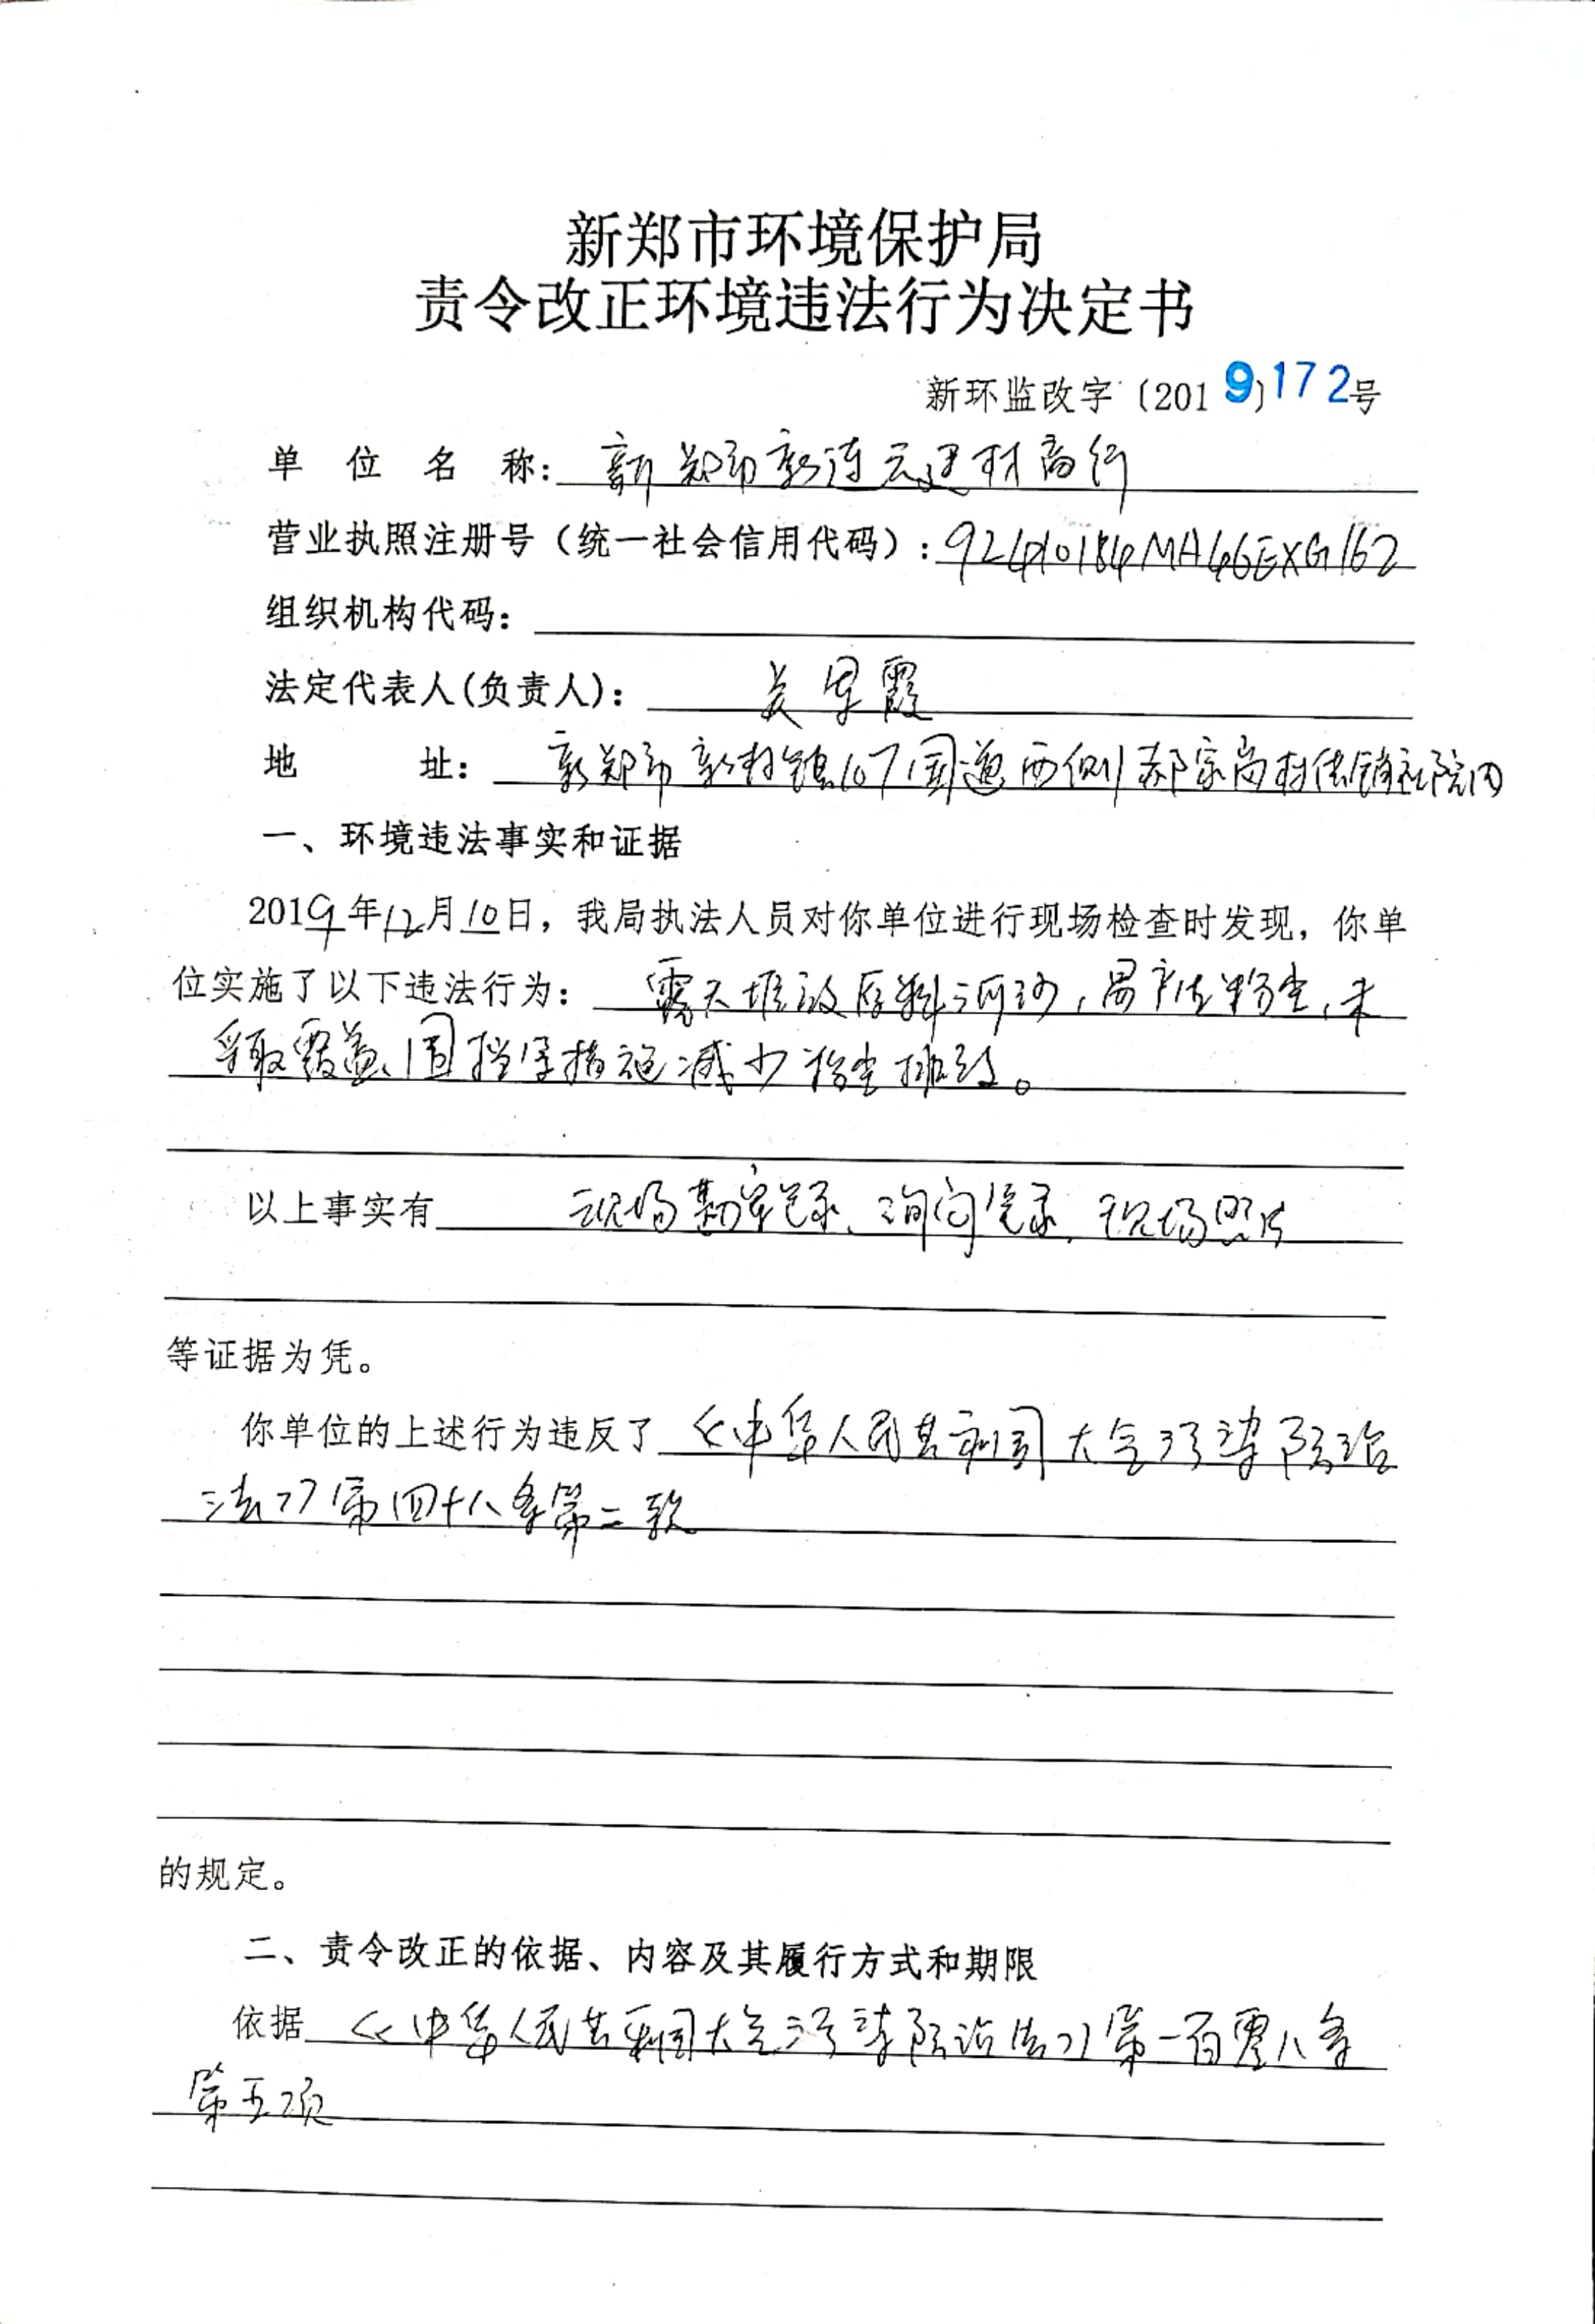 新郑市环境保护局
责令改正环境违法行为决定书
新环监改字〔2019〕172号
单位名称：新郑市新连云建材商行
营业执照注册号（统一社会信用代码）：92410184MA46EXG162
组织机构代码：
法定代表人(负责人)：霞
地址：新郑市新村镇107国道西侧郝家岗村供销社院内
一、环境违法事实和证据
2019年12月10日，我局执法人员对你单位进行现场检查时发现，你单
位实施了以下违法行为：露天堆放原料河沙，易产生粉尘，未
采取覆盖、围挡等措施减少粉尘排放。
以上事实有现场勘察笔录、询问笔录、现场照片
等证据为凭。
你单位的上述行为违反了《中华人民共和国大气污染防治
法》第四十八条第二款
的规定。
二、责令改正的依据、内容及其履行方式和期限
依据《中华人民共和国大气污染防治法》第一百零八条
第五项